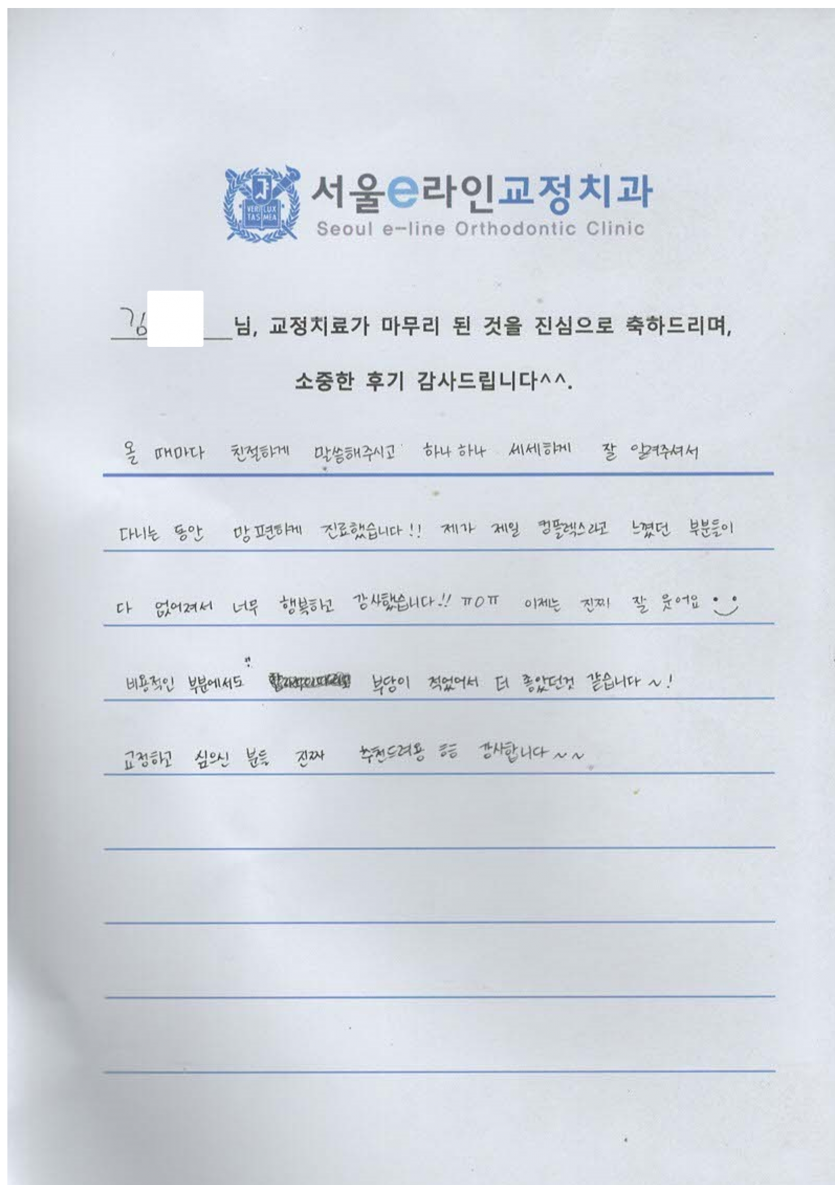 VERI LUX
TAS MEA
서울e라인교정치과
Seoul e-line Orthodontic Clinic
김 님, 교정치료가 마무리 된 것을 진심으로 축하드리며,
소중한 후기 감사드립니다^^.
올 때마다 친절하게 말씀해주시고 하나하나 세세하게 잘 알려주셔서
다니는 동안 맘편하게 진료했습니다!! 제가 제일 컴플렉스라고 느꼈던 부분들이
다 없어져서 너무 행복하고 감사했습니다!! ㅠㅇㅠ 이제는 진찌 잘 웃어요
비용적인 부분에서도 부담이 적었어서 더 좋았던것 같습니다~!
교정하고 싶으신 분들 진짜 추천드려용 ㅎㅎ 감사합니다~~